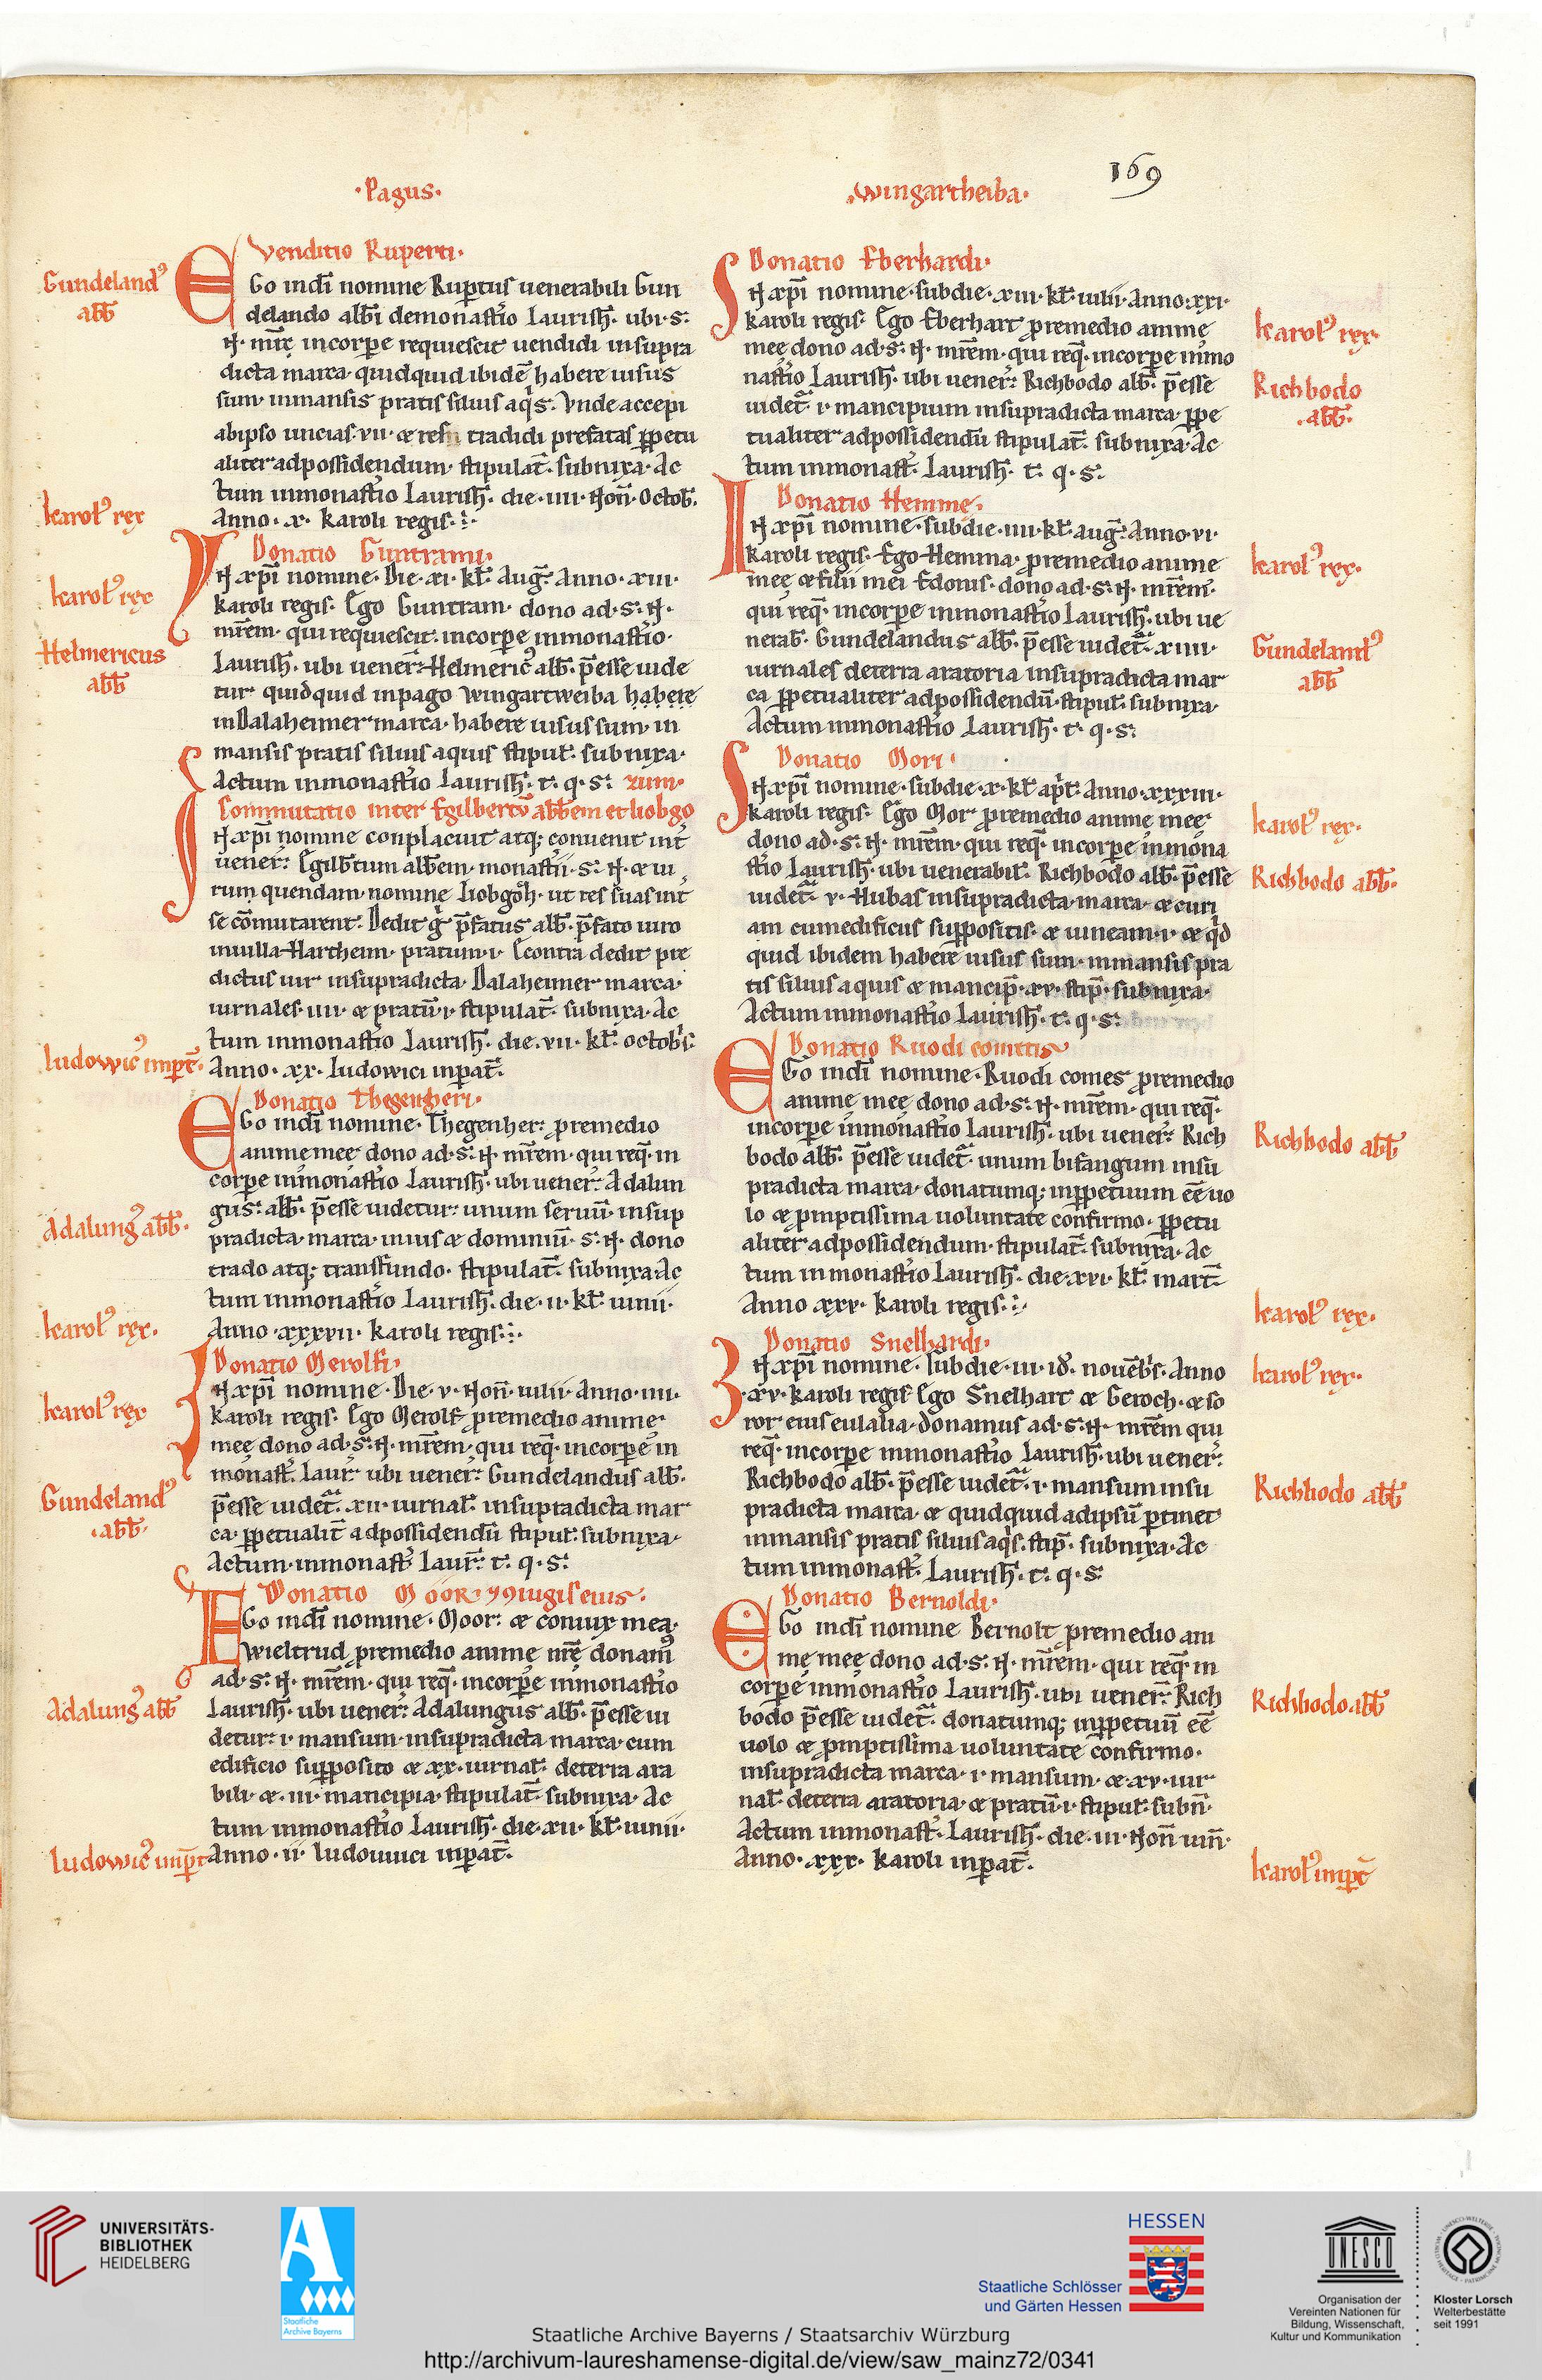 ·Pagus·
·Wingartheiba·
169
Venditio Ruperti·
Gundeland᾽
abb̄
EGo indī nomine Rup̄tus uenerabili Gun
delando abb̄i demonast̄io Laurish̄· ubi·s:
N· mr̄ę incorpe requiescit uendidi insupra
dicta marca· quidquid ibidē habere uisus
sum· inmansis pratis siluis aq̇s· Vnde accepi
abipso uncias·vii· & rem tradidi prefatas p̱petu
aliter adpossidendum· stipulat̄· subnixa· Ac
tum inmonast̄io Laurish̄· die·iiii· Non̄· Octob̄·
Anno·x· karoli regis·:·
karol᾽ rex
Donatio Guntrami·
IN xp̄i nomine· Die·xi· kł· Aug̅· Anno·xiii·
karol᾽ rex
karoli regis· Ego Guntram· dono ad·s:N·
mr̄em· qui requiescit· incorpe inmonast̄io·
Helmericus
abb̄
Laurish̄· ubi uener̄: Helmeric᾽ abb̄· p̄esse uide
tur quidquid inpago Wingartweiba habere
inDalaheimer marca· habere uisus sum· in
mansis pratis siluis aquis stipul̄· subnixa·
Actum inmonast̄io Laurish̄· t· q· s:
Commutatio inter Egilbertū abbem et liobgo
zum·
IN xp̄i nomine conplacuit atq; conuenit int̄
uener̄: Egilb̄tum abb̄em· monast̄ii· s:N· & ui
rum quendam nomine Liobgōh· ut res suas int̄
se cōmutarent: Dedit g̊ p̄fatus abb̄· p̄fato uiro
inuilla Hartheim· pratum·i· Econtra dedit pre
dictus uir insupradicta· Dalaheimer marca·
iurnales·iiii· & pratū·i· stipulat̄· subnixa· Ac
tum inmonast̄io Laurish̄· die·vii· kł· octob̄s·
ludowic᾽ imp̱t̄·
Anno·xx· Ludowici inpat̄·
Donatio Thegenheri·
EGo indī nomine· Thegenher: p̱remedio
animemeę dono ad·s:N· mr̄em· qui req̄· in
corpe inmonast̄io Laurish̄· ubi uener̄: Adalun
Adalung᾽ abb̄·
gus: abb̄· p̄esse uidetur: unum seruū· insup
pradicta· marca· inius & dominiū· s:N· dono
trado atq; transfundo· stipulat̄· subnixa· Ac
tum inmonast̄io Laurish̄· die·ii· kł· iunii·
karol᾽ rex·
Anno·xxxvii· karoli regis·:·
Donatio Merolfi·
IN xp̄i nomine· Die·v· Non̄· iulii· Anno·iiii·
karol᾽ rex
karoli regis· Ego Merolf p̱remedio anime·
meę dono ad·s:N· mr̄em· qui req̄· incorpe in
monast̄· Laur̄· ubi uener̄: Gundelandus abb̄·
Gundeland᾽
·abb̄·
p̄esse uidet̄· xii· iurnal̄· insupradicta mar
ca· p̱petualit̄ adpossidendū stipul̄· subnixa·
Actum· inmonast̄ Laur̄: t· q· s:
Donatio Moor· 9iugis eius·
EGo indī nomine· Moor: & coniux mea·
Wieltrud p̱remedio anime nr̄ę donam᾽
ad·s:N· mr̄em· qui req̄· incorpe inmonast̄io
Adalung᾽ abb̄
Laurish̄· ubi uener̄: Adalungus abb̄· p̄esse ui
detur: i· mansum· insupradicta marca· cum
edificio supposito & xx· iurnal̄· deterra ara
bili· &·iii· mancipia· stipulat̄· subnixa· Ac
tum inmonast̄io Laurish̄· die·xii· kł· iunii·
ludowic᾽ imp̱t̄
Anno·ii· Ludouuici inpat̄·
Donatio Eberhardi·
IN xp̄i nomine· subdie·xiii· kł· iulii· Anno·xxi·
karol᾽ rex·
karoli regis· Ego Eberhart p̱remedio anime
meę dono ad·s:N· mr̄em· qui req̄· incorpe inmo
Richbodo
·abb̄·
nast̄io Laurish̄· ubi uener̄: Richbodo abb̄· p̄esse
uidet̄· i· mancipium insupradicta marca· p̱pe
tualiter adpossidendū stipulat̄· subnixa· Ac
tum inmonast̄· Laurish̄· t· q· s:
Donatio Hemme·
IN xp̄i nomine· subdie·iiii· kł· aug̅· Anno·vi·
karol᾽ rex·
karoli regis· Ego Hemma· p̱remedio anime
meę & filii mei Edonis· dono ad·s:N· mr̄em·
qui req̄· incorpe inmonast̄io Laurish̄· ubi ue
Gundeland᾽
abb̄
nerab̄· Gundelandus abb̄· p̄esse uidet̄· xiiii·
iurnales deterra aratoria insupradicta mar
ca p̱petualiter adpossidendū· stipul̄· subnixa·
Actum inmonast̄io Laurish̄· t· q· s:
Donatio Mori·
IN xp̄i nomine· subdie·x· kł· apr̄· Anno·xxxiii·
karol᾽ rex·
karoli regis· Ego Mor p̱remedio anime meę
dono ad·s:N· mr̄em· qui req̄· incorpe inmona
Richbodo abb̄·
st̄io Laurish̄· ubi uenerabil̄· Richbodo abb̄· p̄esse
uidet̄· v· Hubas insupradicta marca· & curi
am cumedificiis suppositis· & uineam·i· & q̇d
quid ibidem habere uisus sum· inmansis pra
tis siluis aquis & mancip̄·xv· stip̄· subnixa·
Actum inmonast̄io Laurish̄· t· q· s:
Donatio Ruodi comitis
EGo indī nomine· Ruodi comes p̱remedio
anime meę dono ad·s:N· mr̄em· qui req̄·
Richbodo abb̄
incorpe inmonast̄io Laurish̄· ubi uener̄: Rich
bodo abb̄· p̄esse uidet̄· unum bifangum insu
pradicta marca· donatumq; inp̱petuum eē uo
lo & p̱mptissima uoluntate confirmo· p̱petu
aliter adpossidendum· stipulat̄· subnixa· Ac
tum inmonast̄io Laurish̄· die·xvi· kł· mart̄
karol᾽ rex·
Anno xxv· karoli regis·:·
Donatio Snelhardi·
IN xp̄i nomine· subdie·iii· id᾽· nouēb̄s· Anno
karol᾽ rex·
·xv· karoli regis· Ego Snelhart & Geroch· & so
ror eius eulalia· donamus ad·s:N· mr̄em qui
req̄· incorpe inmonast̄io Laurish̄· ubi uener̄:
Richbodo abb̄
Richbodo abb̄· p̄esse uidet̄· i· mansum insu
pradicta marca· & quidquid adipsū p̱tinet
inmansis pratis siluis aq̇s· stip̄· subnixa· Ac
tum inmonast̄· Laurish̄· t· q· s:
Donatio Bernoldi·
EGo indī nomine Bernolt p̱remedio ani
mę meę dono ad·s:N· mr̄em· qui req̄· in
Richbodo abb̄
corpe inmonast̄io Laurish̄· ubi uener̄: Rich
bodo p̄esse uidet̄· donatumq; inp̱petuū eē
uolo & p̱mptissima uoluntate confirmo·
insupradicta marca· i· mansum· & xv· iur
nal̄· deterra aratoria· & pratū·i· stipul̄· subn̄·
Actum inmonast̄· Laurish̄· die·iii· Non̄ iun̄·
karol᾽ imp̱t̄
Anno·xxx· karoli inpat̄·
UNIVERSITÄTS-
BIBLIOTHEK
HEIDELBERG
Staatliche
Archive Bayerns
HESSEN
Staatliche Schlösser
und Gärten Hessen
UNESCO
Organisation der
Vereinten Nationen für
Bildung, Wissenschaft,
Kultur und Kommunikation
Kloster Lorsch
Welterbestätte
seit 1991
Staatliche Archive Bayerns / Staatsarchiv Würzburg
http://archivum-laureshamense-digital.de/view/saw_mainz72/0341